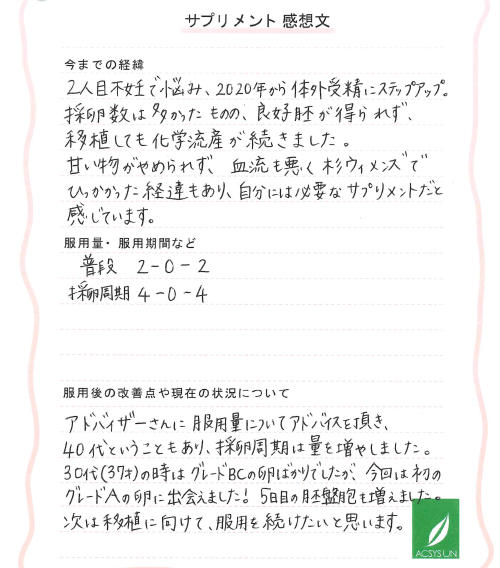 サプリメント 感想文
今までの経緯
2人目不妊で悩み、2020年から体外受精にステップアップ。
採卵数は多かったものの、良好胚が得られず、
移植しても化学流産が続きました。
甘い物がやめられず、血流も悪く杉ウィメンズで
ひっかかった経違もあり、自分には必要なサプリメントだと
感じています。
服用量・服用期間など
普段 2-0-2
採卵周期 4-0-4
服用後の改善点や現在の状況について
アドバイザーさんに服用量についてアドバイスを頂き、
40代ということもあり、採卵周期は量を増やしました。
30代(37才)の時はグレードBCの卵ばかりでしたが、今回は初の
グレードAの卵に出会えました！5日目の胚盤胞も増えました。
次は移植に向けて、服用を続けたいと思います。
ACSYSUN